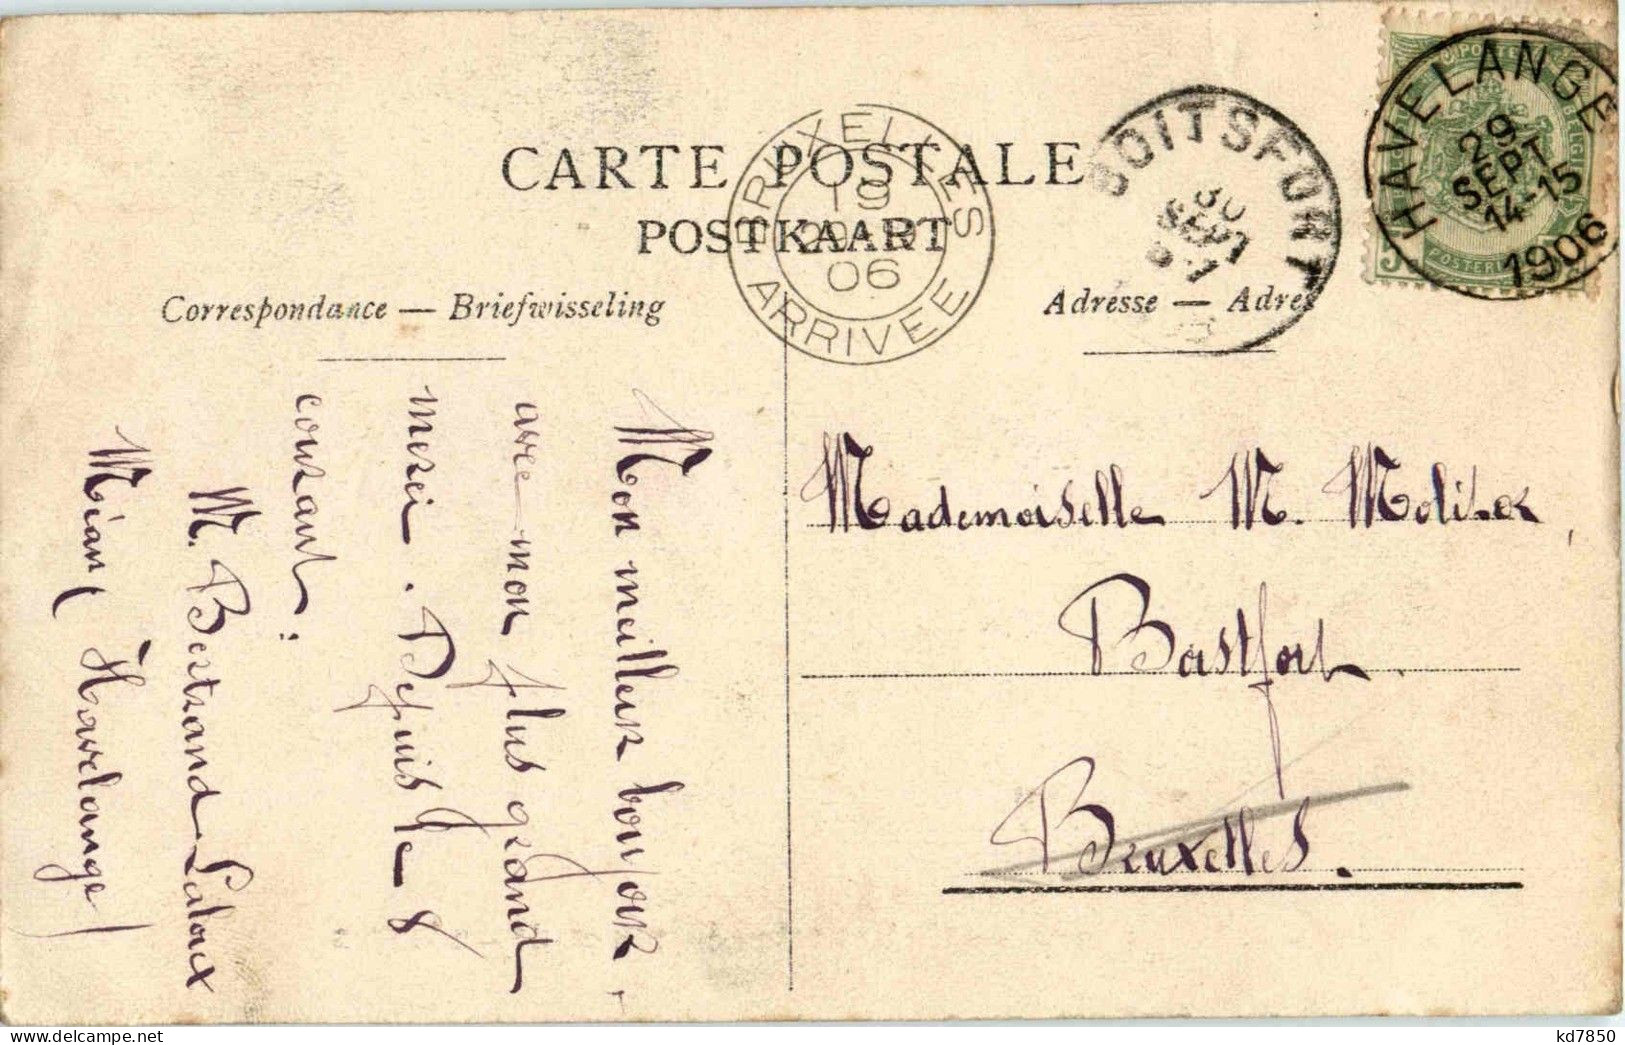 CARTE POSTALE
POSTKAART
Correspondance — Briefwisseling
Adresse — Adres
BRUXELLES
19
29-9
06
ARRIVEE
BOITSFORT
30
SEPT
HAVELANGE
29
SEPT
14-15
1906
Mon meilleur bonjour,
avec mon plus grand
merci. Depuis le 8
courant:
M. Bertrand-Laloux
Mian (Havelange)
Mademoiselle M. Molitor,
Boistfort
Bruxelles.
kd7850